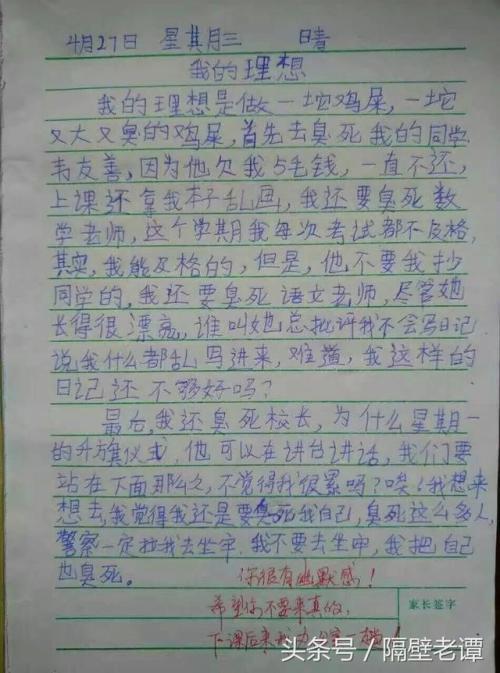 4月27日 星其月三 晴
我的理想
我的理想是做一坨鸡屎,一坨
又大又臭的鸡屎,首先去臭死我的同学
韦友善,因为他欠我5毛钱,一直不还,
上课还拿我本子乱画,我还要臭死数
学老师,这个学期我每次考试都不及格,
其实,我能及格的,但是,他不要我抄
同学的,我还要臭死语文老师,尽管她
长得很漂亮,谁叫她总批评我不会写日记
说我什么都乱写进来,难道,我这样的
日记还不够好吗?
最后,我还臭死校长,为什么星期一
的升旗仪式,他可以在讲台讲话,我们要
站在下面那么久,不觉得我很累吗?唉!我想来
想去,我觉得我还是要臭死我自己,臭死这么多人,
警察一定拉我去坐牢,我不要去坐牢,我把自己
也臭死。
你很有幽默感!
希望你不要来真的,
下课后来我办公室一趟!
家长签字
头条号/隔壁老谭